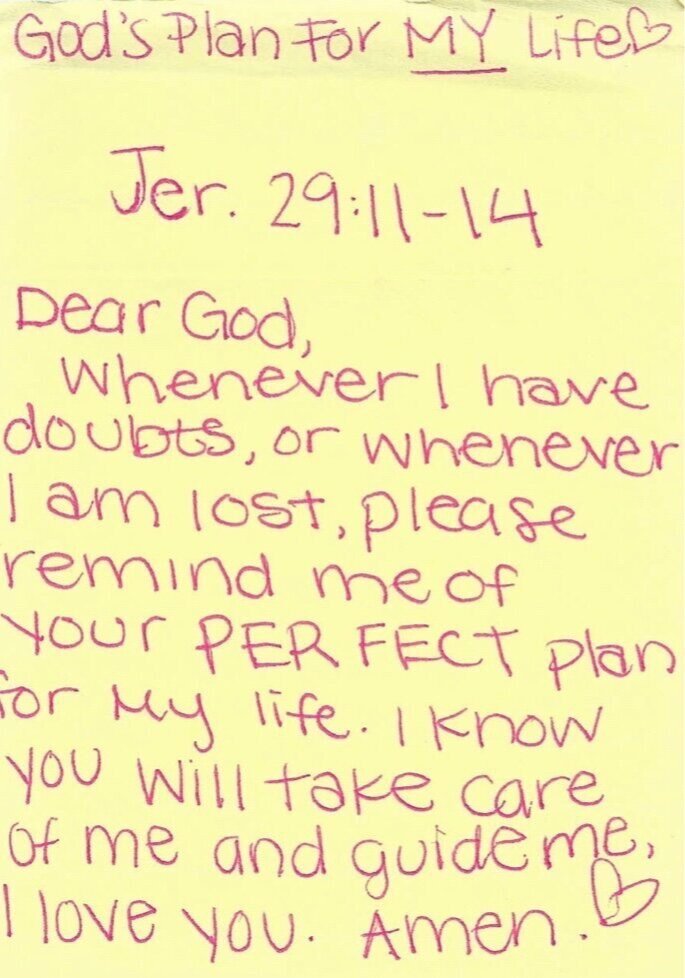 God's Plan For MY Life♡
Jer. 29:11-14
Dear God,
Whenever I have
doubts, or whenever
I am lost, please
remind me of
your PERFECT plan
for My life. I know
you will take care
of me and guide me,
I love you. Amen.♡